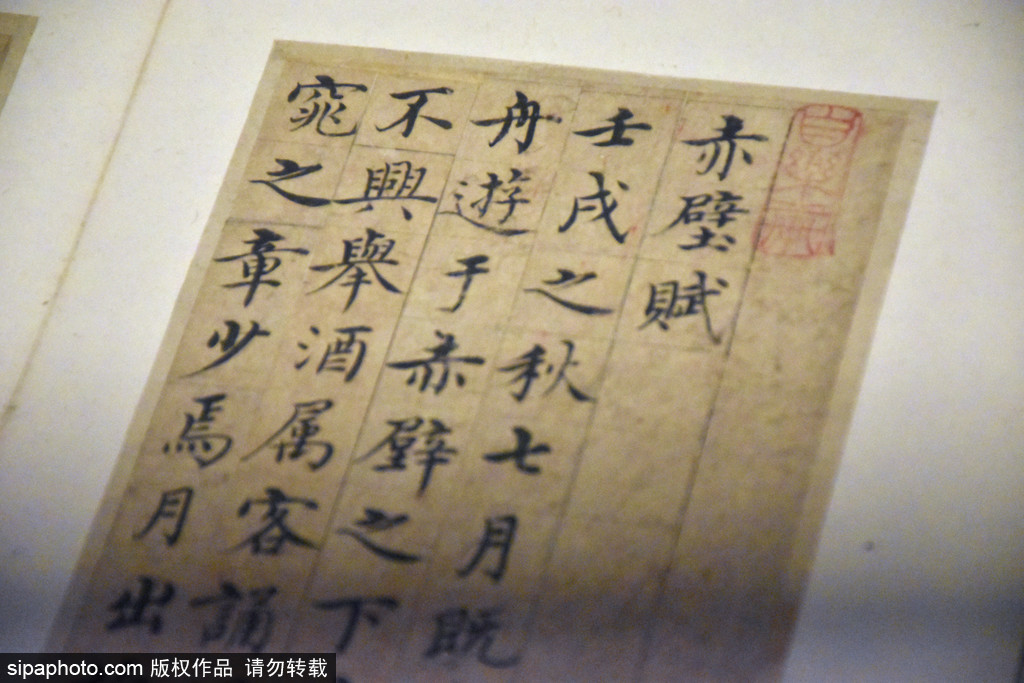 赤壁賦
壬戌之秋七月既
舟遊于赤壁之下
不興舉酒属客誦
窕之章少焉月出
sipaphoto.com 版权作品 请勿转载